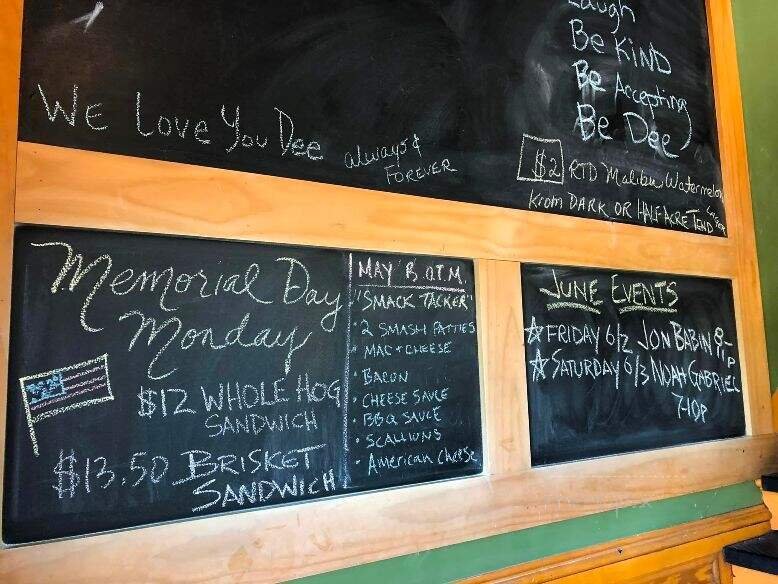 Laugh
Be KIND
Be Accepting
Be Dee
WE Love You Dee always &
FOREVER
$2 RTD Malibu Watermelon
Krom DARK OR HALF ACRE TEND
Memorial Day
Monday
$12 WHOLE HOG
SANDWICH
$13.50 BRISKET
SANDWICH
MAY B.O.T.M.
"SMACK TACKER"
· 2 SMASH PATTIES
· MAC + CHEESE
· BACON
· CHEESE SAUCE
· BBQ SAUCE
· SCALLIONS
· American Cheese
JUNE EVENTS
☆ FRIDAY 6/2 JON BABIN 8-
☆ SATURDAY 6/3 NOAH GABRIEL
7-10P